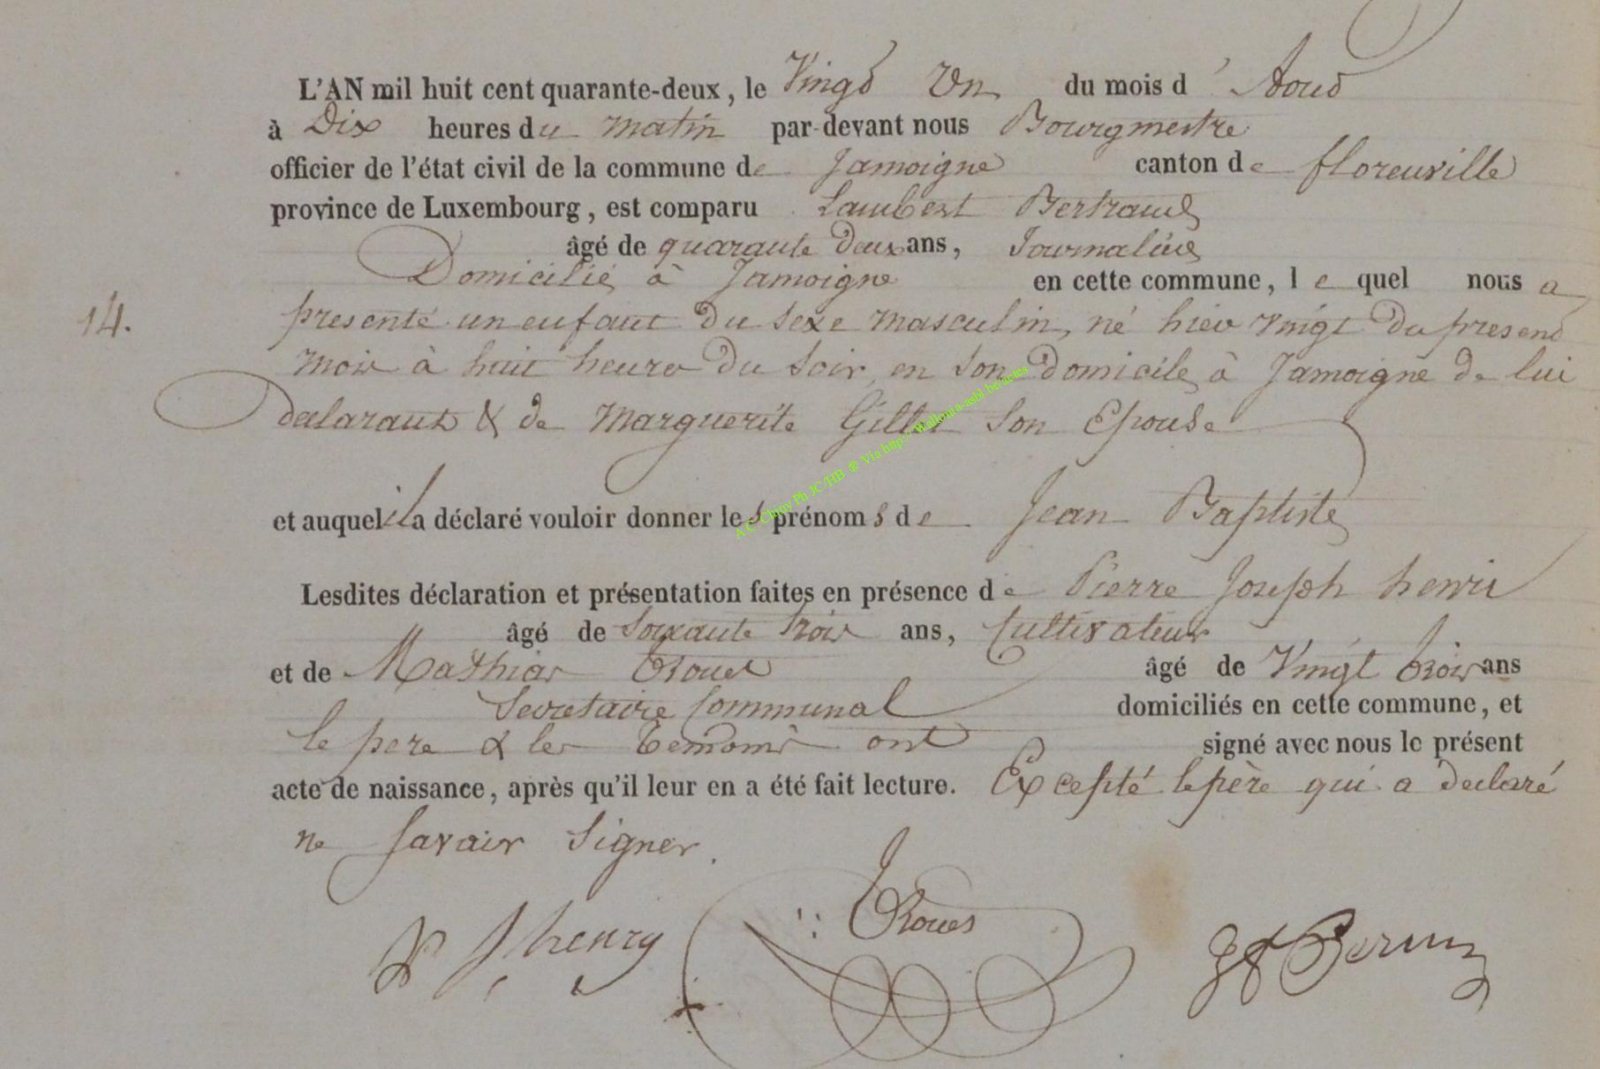 L'AN mil huit cent quarante-deux, le Vingt Un du mois d'Aout
à Dix heures du matin par-devant nous Bourgmestre
officier de l'état civil de la commune de Jamoigne canton de florenville
province de Luxembourg, est comparu Lambert Bertrand
âgé de quarante deux ans, Journalier
Domicilié à Jamoigne en cette commune, lequel nous a
14. presenté un enfant du sexe masculin, né hier vingt du present
mois à huit heures du soir, en son domicile à Jamoigne de lui
declarant & de Marguerite son Epouse
et auquel il a déclaré vouloir donner les prénoms de Jean Baptiste
Lesdites déclaration et présentation faites en présence de Pierre Joseph henri
âgé de soixante trois ans, Cultivateur
et de Mathias âgé de Vingt trois ans
Secretaire Communal domiciliés en cette commune, et
le pere & les temoins ont signé avec nous le présent
acte de naissance, après qu'il leur en a été fait lecture. Excepté le père qui a declaré
ne savoir signer.
P J henry